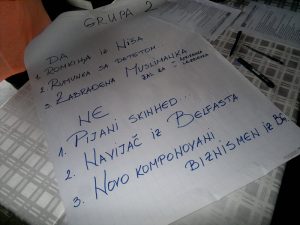 GRUPA 2
DA
1. ROMKINJA IZ NIŠA
2. RUMUNKA SA DETETOM
3. ZABRAĐENA MUSLIMANKA
NE
1. PIJANI SKINHED...
2. NAVIJAČ IZ BELFASTA
3. NOVO KOMPONOVANI
BIZNISMEN IZ